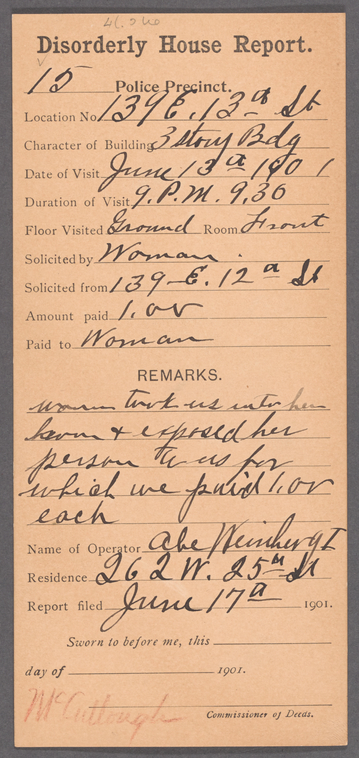 Disorderly House Report.
15 Police Precinct.
Location No 139 E. 13th St
Character of Building 3 story Bdg
Date of Visit June 13th 1901
Duration of Visit 9. P.M. 9.30
Floor Visited Ground Room Front
Solicited by Woman.
Solicited from 139 - E. 12th St
Amount paid 1.00
Paid to Woman
REMARKS.
woman took us into her
room & exposed her
person to us for
which we paid 1.00
each
Name of Operator Abe Weinberg
Residence 262 W. 25th St
Report filed June 17th 1901.
Sworn to before me, this
day of 1901.
McCullough
Commissioner of Deeds.